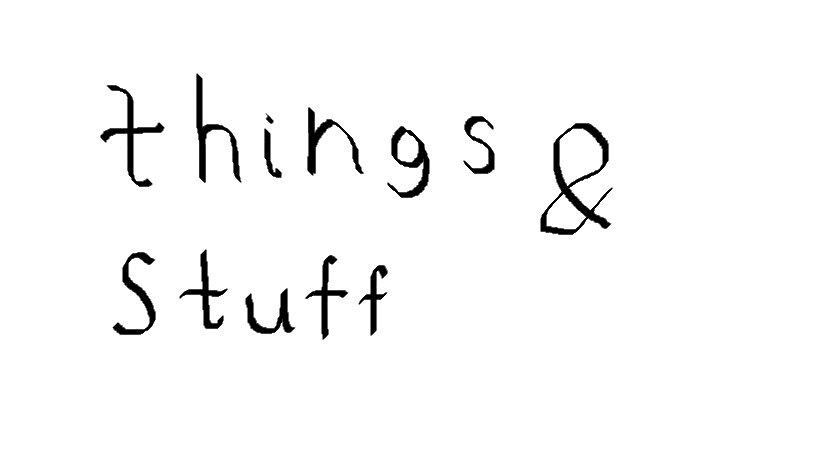 things &
Stuff